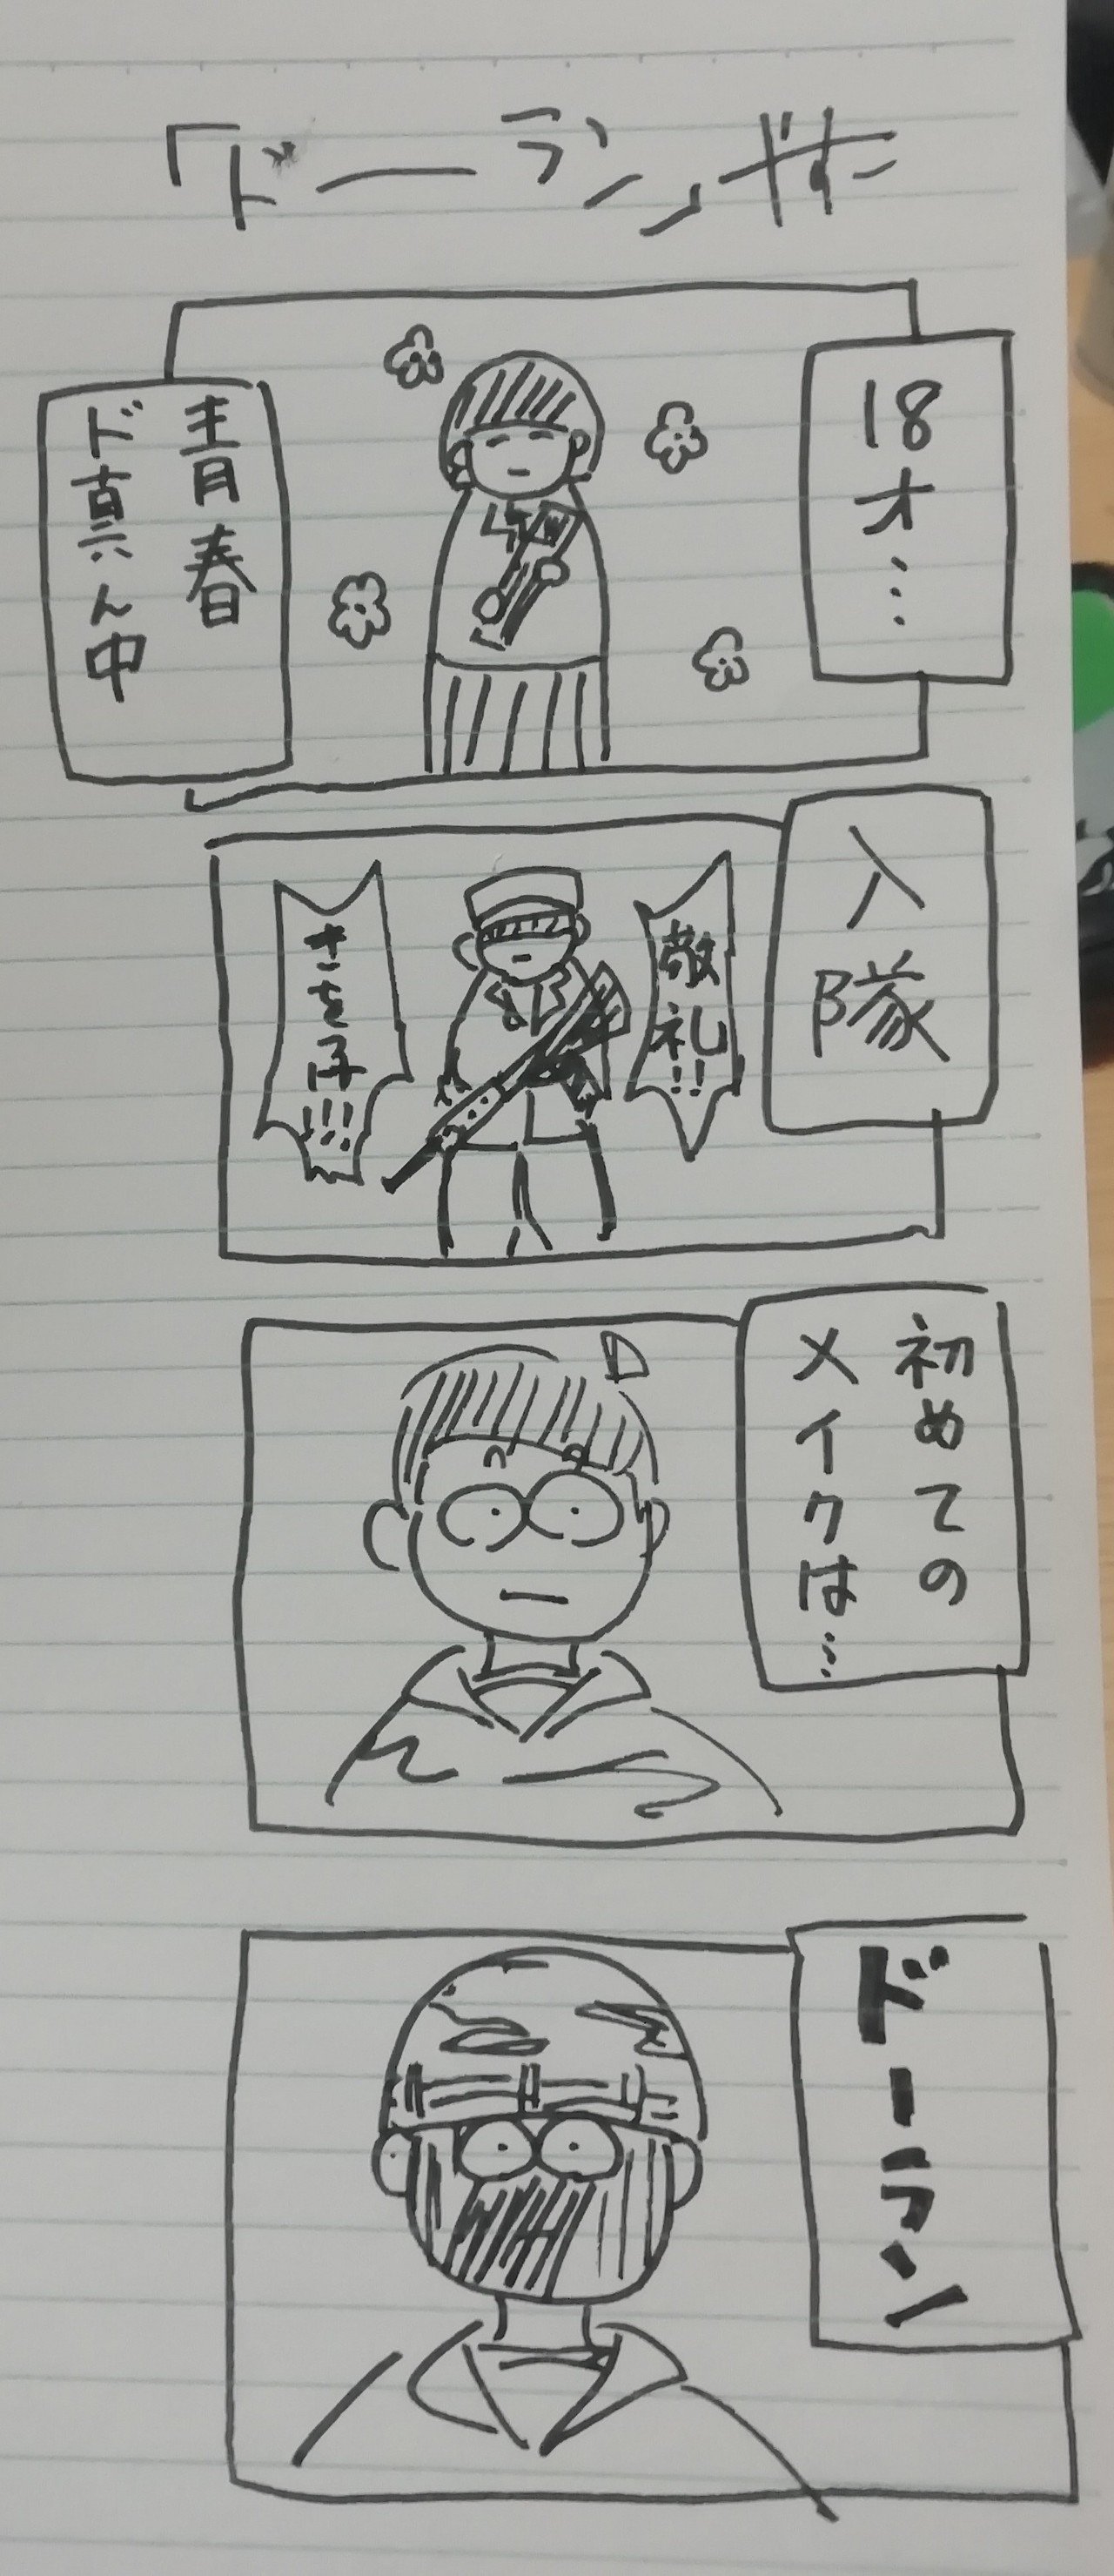 「ドーラン」やすこ
18才…
青春
ド真ん中
入隊
敬礼!!
ささげ
初めての
メイクは…
ドーラン